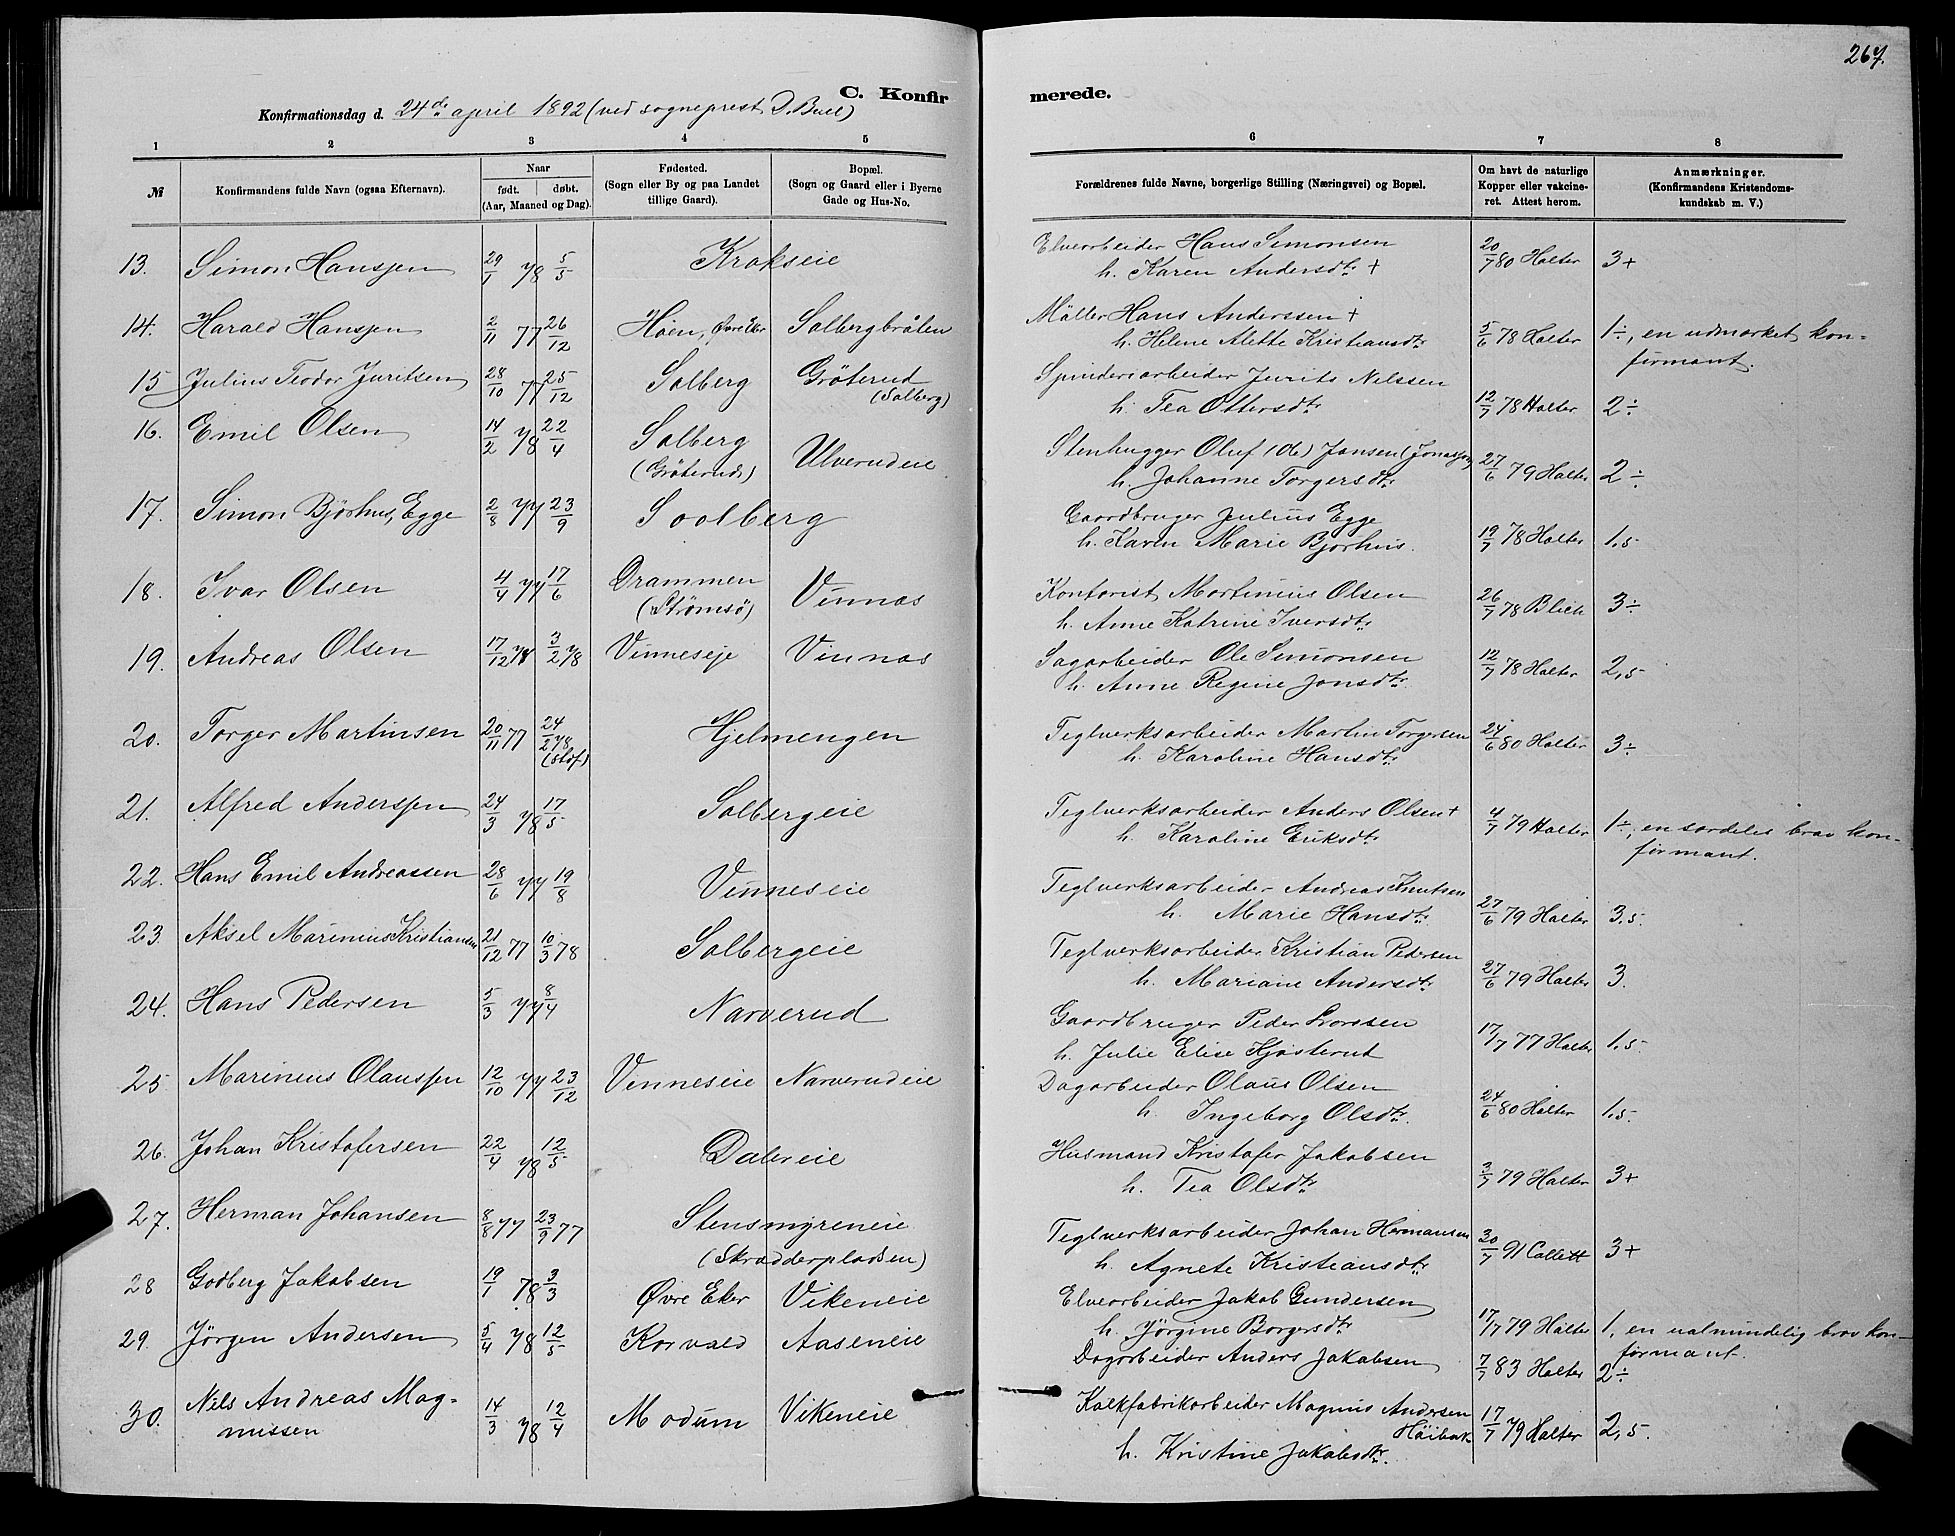 267.
C. Konfirmerede.
Konfirmationsdag d. 24de april 1892 (ved sogneprest D. Buel)
1 2 3 4 5 6 7 8
№
Konfirmandens fulde Navn (ogsaa Efternavn).
Naar
født. døbt.
(Aar, Maaned og Dag).
Fødested.
(Sogn eller By og paa Landet
tillige Gaard).
Bopæl.
(Sogn og Gaard eller i Byerne
Gade og Hus-No.
Forældrenes fulde Navne, borgerlige Stilling (Næringsvei) og Bopæl.
Om havt de naturlige
Kopper eller vakcine-
ret. Attest herom.
Anmærkninger.
(Konfirmandens Kristendoms-
kundskab m. V.)
13. Simon Hansjen 29/1 78 5/5 Krokseie Elvearbeider Hans Simonsen 20/7 80 Holter 3+
h. Karen Andersdtr +
14. Harald Hansjen 2/11 77 26/12 Höen, Øvre Eker Solbergbråten Möller Hans Anderssen + 5/6 78 Holter 1÷, en udmærket kon-
h. Helene Alette Kristiansdtr firmant.
15 Julius Teodor Juritsen 28/10 77 25/12 Solberg Gröterud Spinderiarbeider Jurits Nilssen 12/7 78 Holter 2÷
(Solberg)
h. Tea Ottersdtr
16. Emil Olsen 14/2 78 22/4 Solberg Ulverudeie Stenhugger Oluf (Ole) Jansen (Jonassen) 27/6 79 Holter 2÷
(Gröterud)
h. Johanne Torgersdtr
17. Simon Bjørhus, Egge 2/8 77 23/9 Solberg Gaardbruger Julius Egge 19/7 78 Holter 1,5
h. Karen Marie Bjørhus.
18. Ivar Olsen 4/4 77 17/6 Drammen Vinnas Kontorist Martinius Olsen 26/7 78 Blich 3÷
(Strømsö)
h. Anne Katrine Iversdtr
19. Andreas Olsen 17/12 78 3/2 78 Vinneseje Vinnas Sagarbeider Ole Simonsen 12/7 78 Holter 2,5
h. Anne Regine Jonsdtr.
20. Torger Martinsen 20/11 77 24/2 78 Hjelmengen Teglverksarbeider Martin Torgersen 24/6 80 Holter 3÷
(Stdf)
h. Karoline Hansdtr
21. Alfred Andersjen 24/3 78 17/5 Solbergeie Teglverksarbeider Anders Olsen + 4/7 79 Holter 1÷, en særdeles brav kon-
h. Karoline Eriksdtr firmant.
22. Hans Emil Andreassen 28/6 77 19/8 Vinneseie Teglverksarbeider Andreas Knutsen 27/6 79 Holter 3.5.
h. Marie Hansdtr
23. Aksel Marinius Kristiansen 21/12 77 10/3 78 Solbergeie Teglverksarbeider Kristian Pedersen 27/6 79 Holter 3.
h. Mariane Andersdtr
24. Hans Pedersen 5/3 77 8/4 Narverud Gaardbruger Peder Iverssen 17/7 77 Holter 1,5.
h. Julie Elise Kjøsterud
25. Marinius Olausjen 12/10 77 23/12 Vinneseie Narverudeie Dagarbeider Olaus Olsen 24/6 80 Holter 1,5.
h. Ingeborg Olsdtr.
26. Johan Kristofersen 22/4 78 12/5 Dalereie Husmand Kristofer Jakobsen 3/7 79 Holter 3+
h. Tea Olsdtr
27. Herman Johansen 8/8 77 23/9 77 Stensmyreneie Teglverksarbeider Johan Hermansen 30/7 91 Collett 3+
(Skrædderpladsen)
h. Agnete Kristiansdtr
28 Godberg Jakobsen 19/1 78 3/3 Øvre Eker Vikeneie Elvearbeider Jakob Gundersen 17/7 79 Holter 1, en ualmindelig brav kon-
h. Jörgine Borgersdtr firmant.
29. Jörgen Andersen 5/4 78 12/5 Korvald Aaseneie Dagarbeider Anders Jakobsen 7/7 83 Holter 2÷
30. Nils Andreas Mag- 14/3 78 12/4 Modum Vikeneie Kalkfabrikarbeider Magnus Andersen 17/7 79 Holter 2,5.
nussen Höibak
h. Kristine Jakobsdtr.